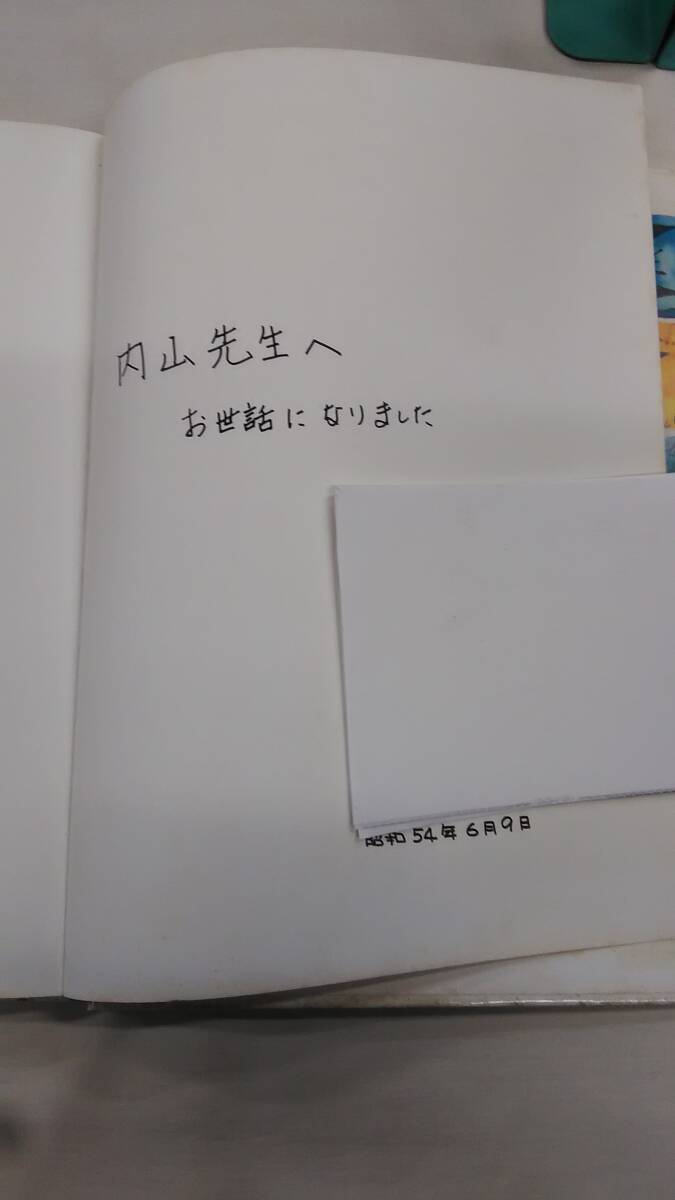 内山先生へ
お世話になりました
昭和54年6月9日